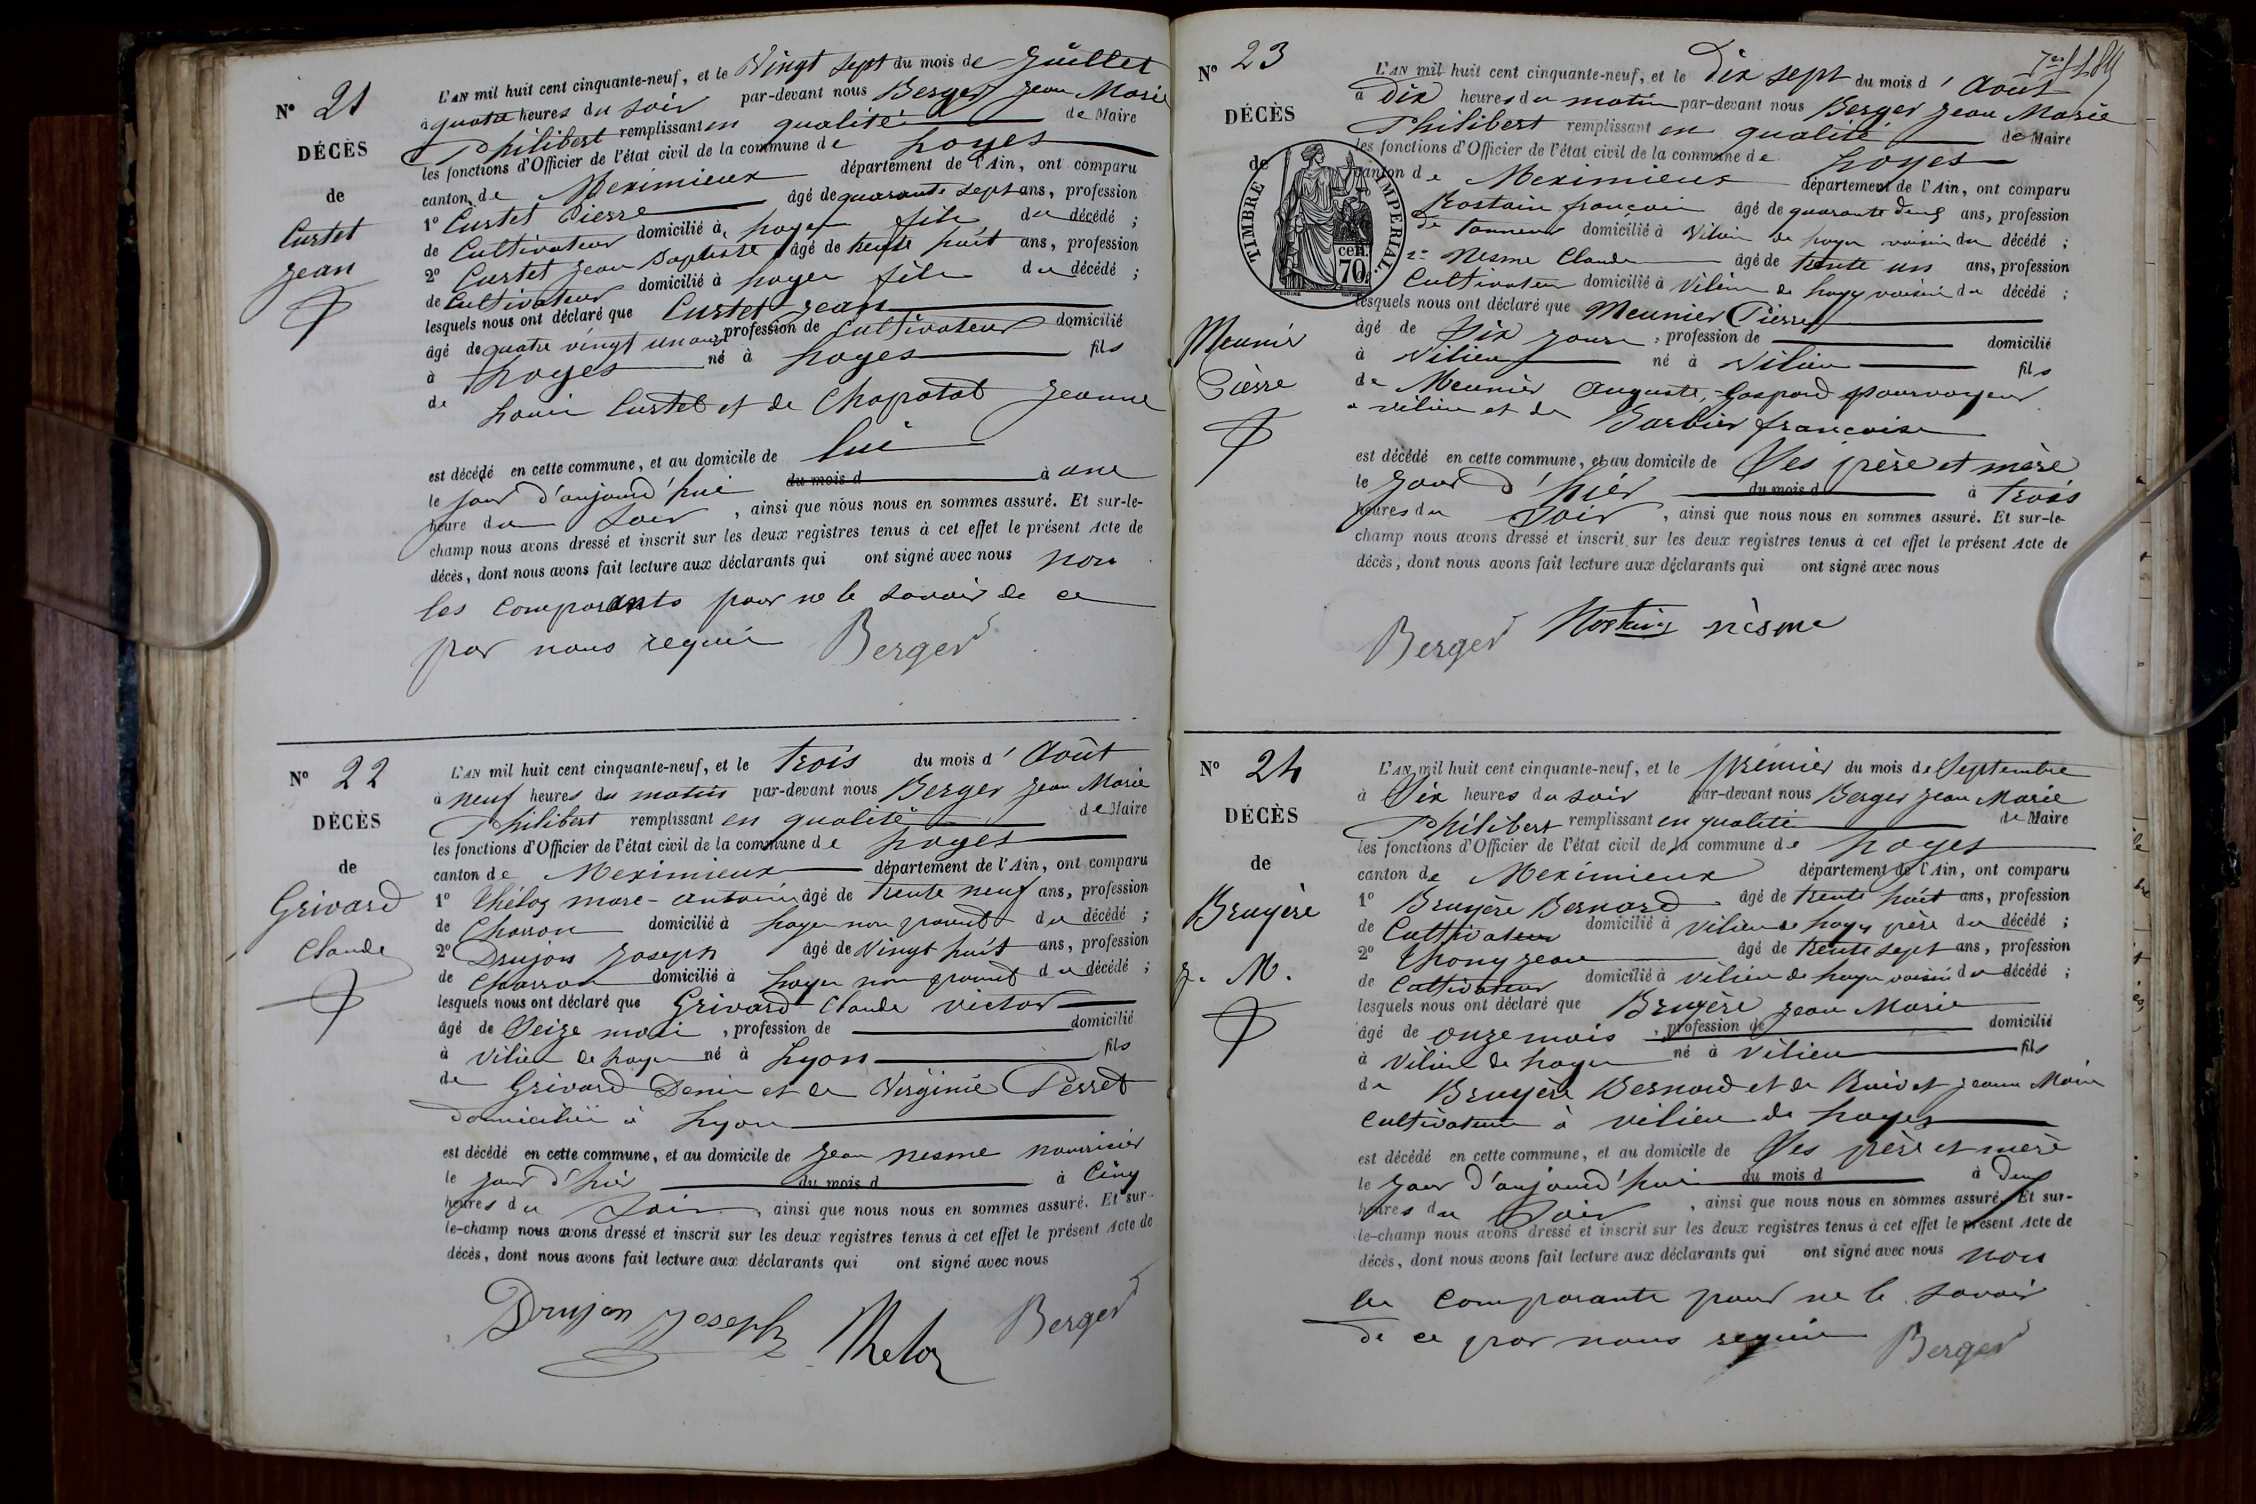 N° 21
DÉCÈS
de
Curtet
Jean
L'AN mil huit cent cinquante-neuf, et le Vingt sept du mois de Juillet
à quatre heures du soir par-devant nous Berger Jean Marie
Philibert remplissant en qualité de Maire
les fonctions d'Officier de l'état civil de la commune de Loyes
canton de Meximieux département de l'Ain, ont comparu
1° Curtet Pierre âgé de quarante sept ans, profession
de Cultivateur domicilié à Loyes fils du décédé ;
2° Curtet Jean Baptiste âgé de trente huit ans, profession
de Cultivateur domicilié à Loyes fils du décédé ;
lesquels nous ont déclaré que Curtet Jean
âgé de quatre vingt un ans profession de Cultivateur domicilié
à Loyes né à Loyes fils
de Louis Curtet et de Chapotat Jeanne
est décédé en cette commune, et au domicile de lui
le jour d'aujourd'hui du mois d à une
heure du Soir, ainsi que nous nous en sommes assuré. Et sur-le-
champ nous avons dressé et inscrit sur les deux registres tenus à cet effet le présent Acte de
décès, dont nous avons fait lecture aux déclarants qui ont signé avec nous non
les comparants pour ne le savoir de ce
par nous requis Berger
N° 22
DÉCÈS
de
Grivard
Claude
L'AN mil huit cent cinquante-neuf, et le trois du mois d'Août
à neuf heures du matin par-devant nous Berger Jean Marie
Philibert remplissant en qualité de Maire
les fonctions d'Officier de l'état civil de la commune de Loyes
canton de Meximieux département de l'Ain, ont comparu
1° Théloz marc-antoine âgé de trente neuf ans, profession
de Charron domicilié à Loyes non parent du décédé ;
2° Drujon Joseph âgé de Vingt huit ans, profession
de Charron domicilié à Loyes non parent du décédé ;
lesquels nous ont déclaré que Grivard Claude victor
âgé de Seize mois, profession de domicilié
à Vilieu de Loyes né à Lyon fils
de Grivard Denis et de Virginie Perret
domiciliés à Lyon
est décédé en cette commune, et au domicile de Jean nesme nourricier
le jour d'hier du mois d à Cinq
heures du Soir, ainsi que nous nous en sommes assuré. Et sur-
le-champ nous avons dressé et inscrit sur les deux registres tenus à cet effet le présent Acte de
décès, dont nous avons fait lecture aux déclarants qui ont signé avec nous
Drujon Joseph Theloz Berger
N° 23
DÉCÈS
de
TIMBRE IMPERIAL.
70 cen.
Meunier
Pierre
L'AN mil huit cent cinquante-neuf, et le Dix sept du mois d'Août
à Dix heures du matin par-devant nous Berger Jean Marie
Philibert remplissant en qualité de Maire
les fonctions d'Officier de l'état civil de la commune de Loyes
canton de Meximieux département de l'Ain, ont comparu
Rostain françois âgé de quarante deux ans, profession
de Tanneur domicilié à Vilieu de Loyes voisin du décédé ;
2° Nesme Claude âgé de trente un ans, profession
Cultivateur domicilié à Vilieu de Loyes voisin du décédé ;
lesquels nous ont déclaré que Meunier Pierre
âgé de Six jours, profession de domicilié
à Vilieu né à Vilieu fils
de Meunier Auguste, Gaspard pourvoyeur
à vilieu et de Barbier françoise
est décédé en cette commune, et au domicile de Ses père et mère
le jour d'hier du mois d à trois
heures du Soir, ainsi que nous nous en sommes assuré. Et sur-le-
champ nous avons dressé et inscrit sur les deux registres tenus à cet effet le présent Acte de
décès, dont nous avons fait lecture aux déclarants qui ont signé avec nous
Berger nèsme
N° 24
DÉCÈS
de
Bruyère
J. M.
L'AN mil huit cent cinquante-neuf, et le premier du mois de Septembre
à Six heures du soir par-devant nous Berger Jean Marie
Philibert remplissant en qualité de Maire
les fonctions d'Officier de l'état civil de la commune de Loyes
canton de Meximieux département de l'Ain, ont comparu
1° Bruyère Bernard âgé de trente huit ans, profession
de Cultivateur domicilié à Vilieu de Loyes père du décédé ;
2° Thony Jean âgé de trente sept ans, profession
de Cultivateur domicilié à Vilieu de Loyes voisin du décédé ;
lesquels nous ont déclaré que Bruyère Jean Marie
âgé de onze mois, profession de domicilié
à Vilieu de Loyes né à Vilieu fils
de Bruyère Bernard et de jeanne Marie
Cultivateurs à vilieu de Loyes
est décédé en cette commune, et au domicile de Ses père et mère
le jour d'aujourd'hui du mois d à Deux
heures du Soir, ainsi que nous nous en sommes assuré. Et sur-
le-champ nous avons dressé et inscrit sur les deux registres tenus à cet effet le présent Acte de
décès, dont nous avons fait lecture aux déclarants qui ont signé avec nous non
les comparants pour ne le savoir
de ce par nous requis Berger